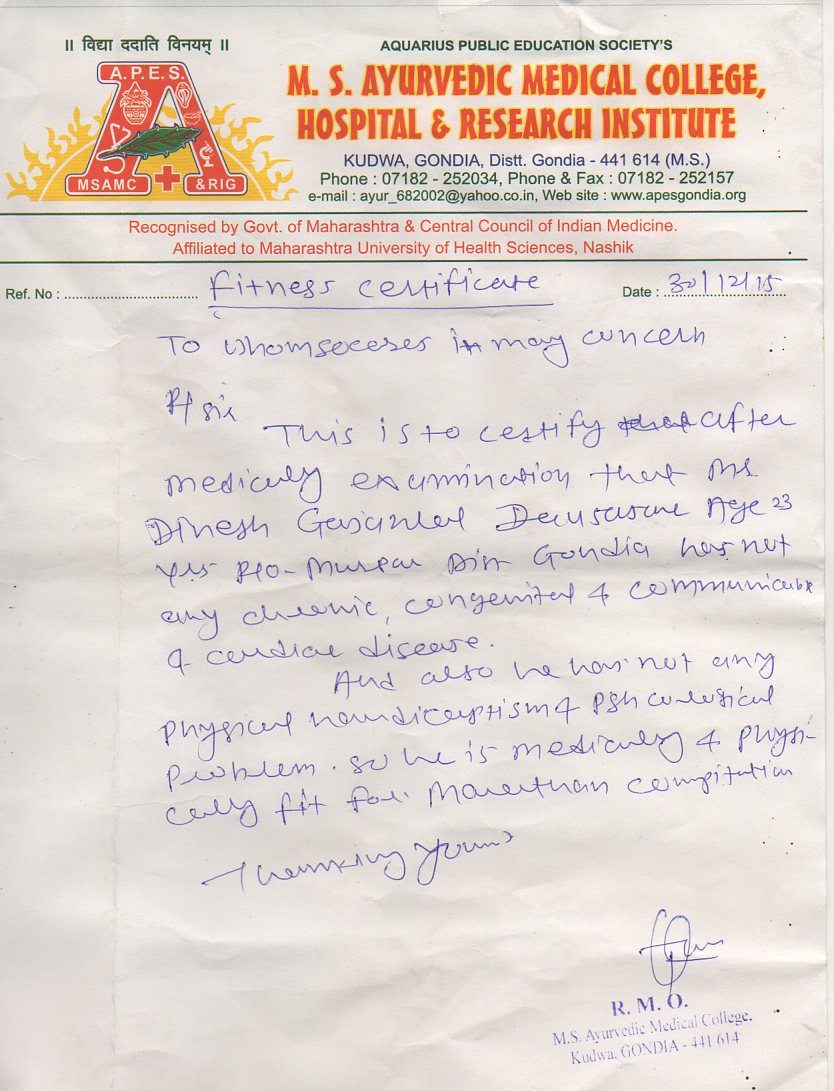 ॥ विद्या ददाति विनयम् ॥
A.P.E.S.
MSAMC & RIG
AQUARIUS PUBLIC EDUCATION SOCIETY'S
M. S. AYURVEDIC MEDICAL COLLEGE,
HOSPITAL & RESEARCH INSTITUTE
KUDWA, GONDIA, Distt. Gondia - 441 614 (M.S.)
Phone : 07182 - 252034, Phone & Fax : 07182 - 252157
e-mail : ayur_682002@yahoo.co.in, Web site : www.apesgondia.org
Recognised by Govt. of Maharashtra & Central Council of Indian Medicine.
Affiliated to Maharashtra University of Health Sciences, Nashik
Ref. No : Fitness certificate Date : 30/12/15
To whomsoever in may concern
R/sir
This is to certify that after
medically examination that Mr
Dinesh Age 23
yrs R/o- Dist Gondia has not
any chronic, congenital & communicable
& cardiac disease.
And also he has not any
physical handicaptism &
problem. so he is medically & physi-
cally fit for Marathan compitation
Thanking yours
R. M. O.
M.S. Ayurvedic Medical College,
Kudwa, GONDIA - 441 614